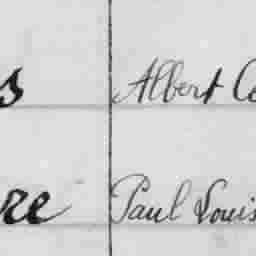 s Albert Co
re Paul Louis